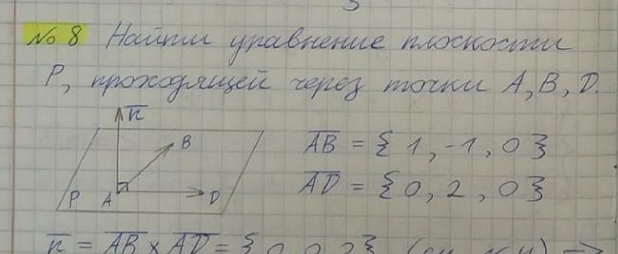 № 8 Найти уравнение плоскости
P, проходящей через точки A, B, D.
n̅
B
P A D
A̅B̅ = {1, -1, 0}
A̅D̅ = {0, 2, 0}
n̅ = A̅B̅ × A̅D̅ = {0, 0, 2} (см. №4) ⇒